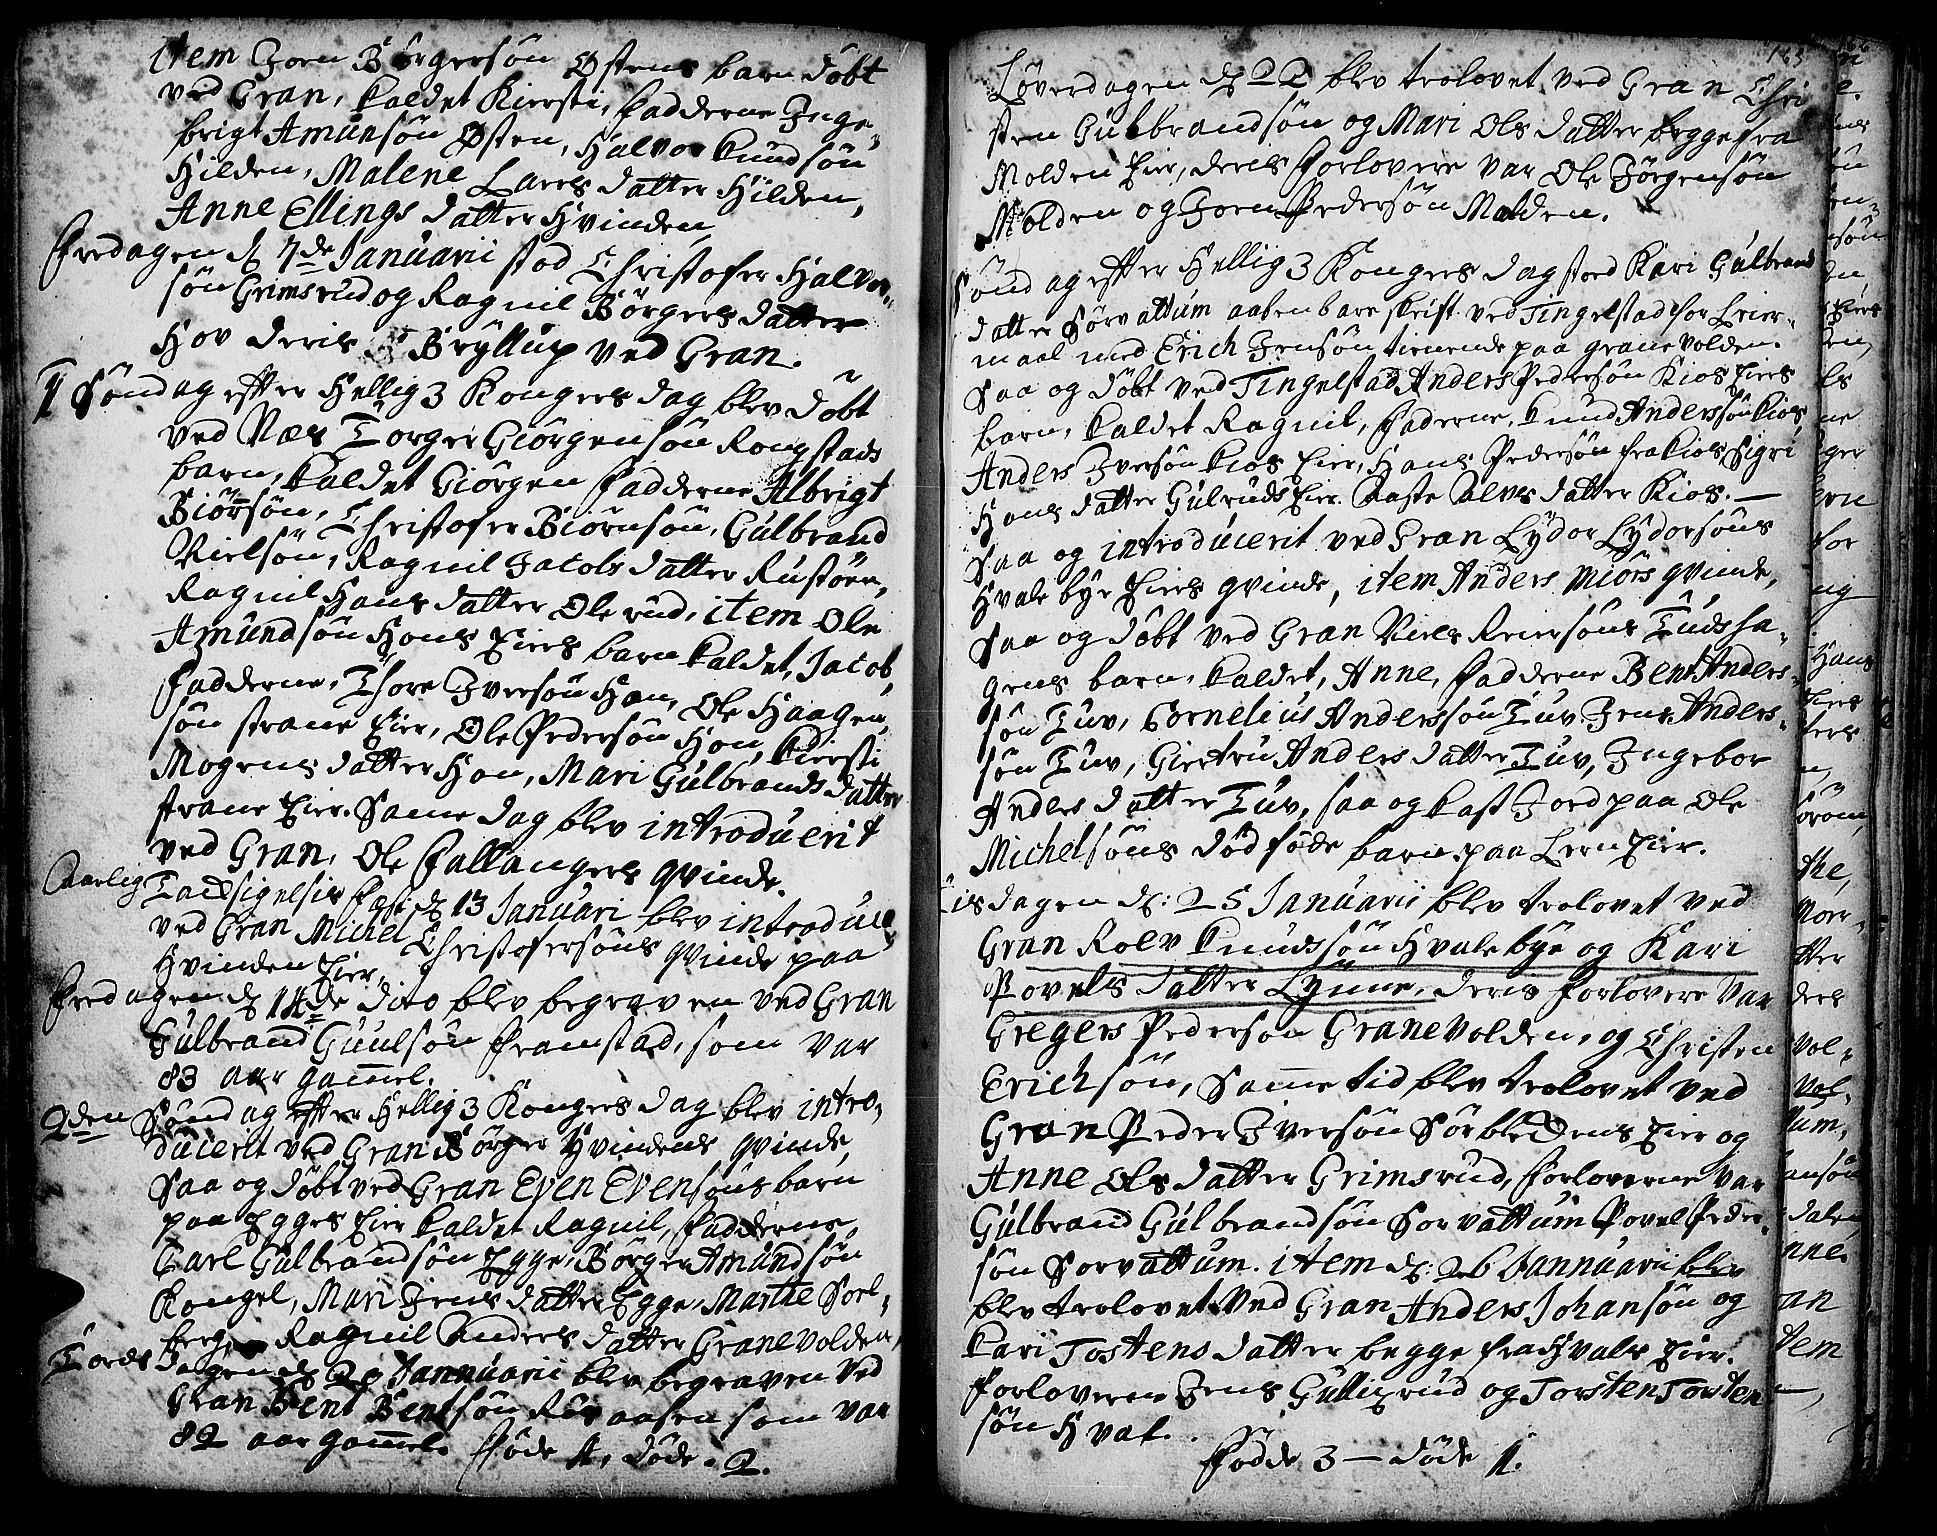 item Joen Börgersön Östens barn döbt
ved Gran, kaldet Kiersti, fadderne Inge-
brigt Amunsön Østen, Halvor knudsön
Hilden, Malene Lares datter Hilden,
Anne Ellings datter Hvinden,
fredagen d 7de Januarii stod Christofer Halvor-
sön Grimsrud og Ragnil Börgers datter
Hov deris Bryllup ved Gran.
1 Söndag efter Hellig 3 Kongers dag blev döbt
ved Næs Torger Giörgensön Rongstads
barn, kaldet Giörgen fadderne Albrigt
Biörsön, Christofer Biörnsön, Gulbrand
Nielsön, Ragnil Jacobs datter Rustöen,
Ragnil Hans datter Ole rud, item Ole
Amundsön Hons Eiers barn kaldet, Jacob,
fadderne, Thore Iversön Hon, Ole Haagen
sön strane Eier, Ole Pedersön Hon, kiersti
Mogens datter Hon, Mari Gulbrands datter
strane Eier. Same dag blev introduerit
ved Gran, Ole fallangers qvinde.
Aarlig Tacksigelsis fæst d 13 Januari blev introduce
ved Gran Michel Christofersöns qvinde paa
Hvinden Eier,
fredagen d 14de dito blev begraven ved Gran
Gulbrand Guulsön framstad, som var
83 aar gammel.
2den Söndag efter Hellig 3 Kongers dag blev intro-
ducerit ved Gran Börger Hvindens qvinde,
Saa og döbt ved Gran Even Evensöns barn
paa Egges Eier kaldet Ragnil, fadderne,
Carl Gulbrandsön Egge, Börger Amundsön
Kongel, Mari Jens datter Egge, Marthe Soel-
berg, Ragnil Anders datter Granevolden,
Torsdagen d 20 Jannuarii blev begraven ved
Gran Bent Bentsön Rüvaasen som var
82 aar gammel. föde 4, döde. 2.
163
Löverdagen d 22 blev trolovet ved Gran Chri
sten Gulbrandsön og Mari Ols datter begge fra
Molden Eier, deris forlovere var Ole Jörgensön
Molden og Joen Pedersön Molden.
Söndag efter Hellig 3 Kongers dag stod Kari Gulbrand
datter Sörvattum aabenbare skrift ved Tingelstad for Leier-
maal med Erich Jensön tienende paa granevolden.
Saa og döbt ved Tingelstad Anders Pedersön Kios Eiers
barn, kaldet Ragnil, faderne, knud Anderssön kios,
Anders Iversön kios Eier, Hans Pedersön fra kios, Sigri
Hans datter Gulruds Eier. Aaste Alvs datter Kios. —
Saa og introducerit ved Gran Lydor Lydorsöns
Hvale bye Eiers qvinde, item Anders Miörs qvinde,
Saa og döbt ved Gran Niels Reiersöns Tudsha-
gens barn, kaldet, Anne, fadderne Bent Anders-
sön Tuv, Cornelius Anderssön Tuv, Jens Anders-
sön Tuv, Giertru Anders datter Tuv, Ingebor
Anders datter Tuv, saa og kast Jord paa Ole
Michelsöns död föde barn paa Lern Eier.
Tisdagen d: 25 Januarii blev trolovet ved
Gran Rolv knudssön Hvale bye og Kari
Povels datter Lynne, deris forlovere var
Gregers Pedersön Granevolden, og Christen
Erichsön, Samme tid blev trolovet ved
Gran Peder Iversön Sörbledens Eier og
Anne Ols datter Grimsrud, forloverne var
Gulbrand Gulbrandsön Sorvattum Povel Peder-
sön Sorvattum. item d: 26 Jannuarii blev
blev trolovet ved Gran Anders Johansön og
kari Tostens datter begge fra Hvals Eier.
forloverne Jens Gullixrud og Torsten Torsten
sön Hval.
födde 3 — döde 1.